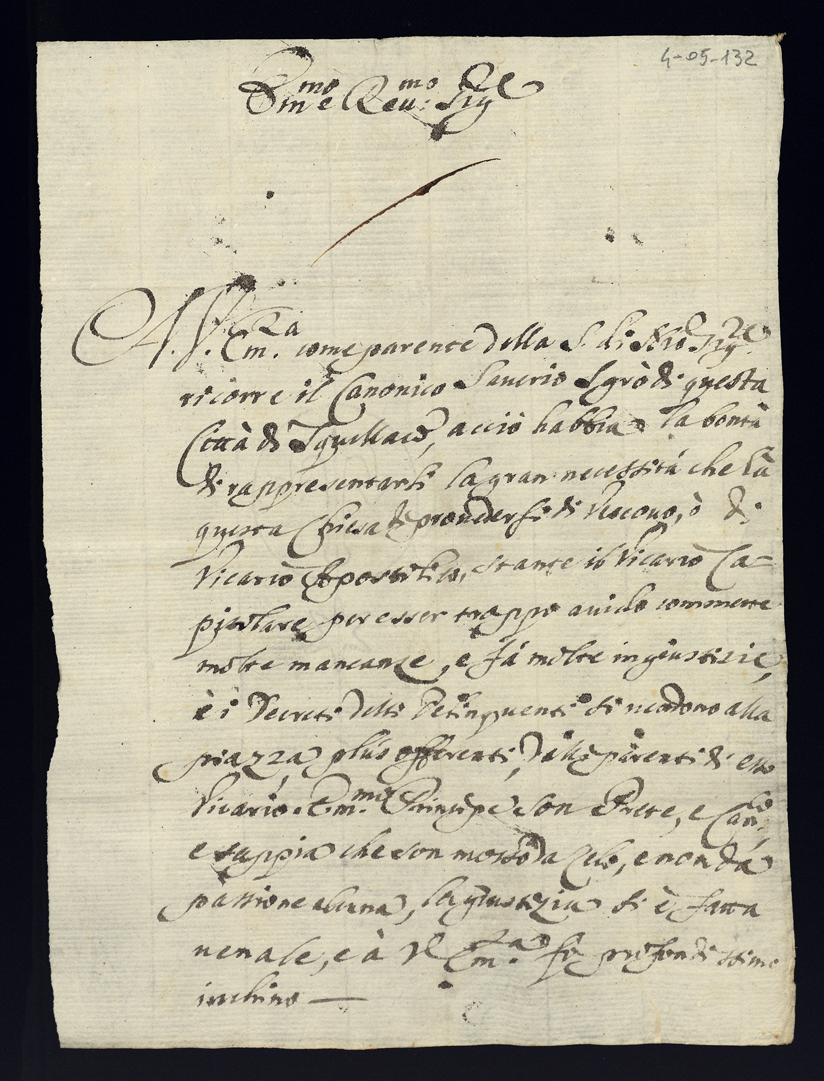 4-05-132
Em.mo e Reu:mo Sig.re
A. V. Em.Ra come parente della S. di N.ro Sig.re
ricorre il Canonico Sauerio Sgrò di questa
Città di Squillace, acciò habbia la bontà
di rappresentarli la gran necessità che hà
questa Chiesa di prouedersi di Vescouo, ò di
Vicario Apostolico, stante il Vicario Ca-
pitolare per esser troppo auido commette
molte mancanze, e fà molte ingiustizie,
è i Decreti delli Delinquenti si uendono alla
piazza, plus offerenti, dalli parenti di esso
Vicario. Em.mo Principe son Prete, e Can.co,
e sappia che son mosso da Celo, e non da
passione alcuna, la giustizia si è fatta
uenale, e à V. Em.za fò profondissimo
inchino